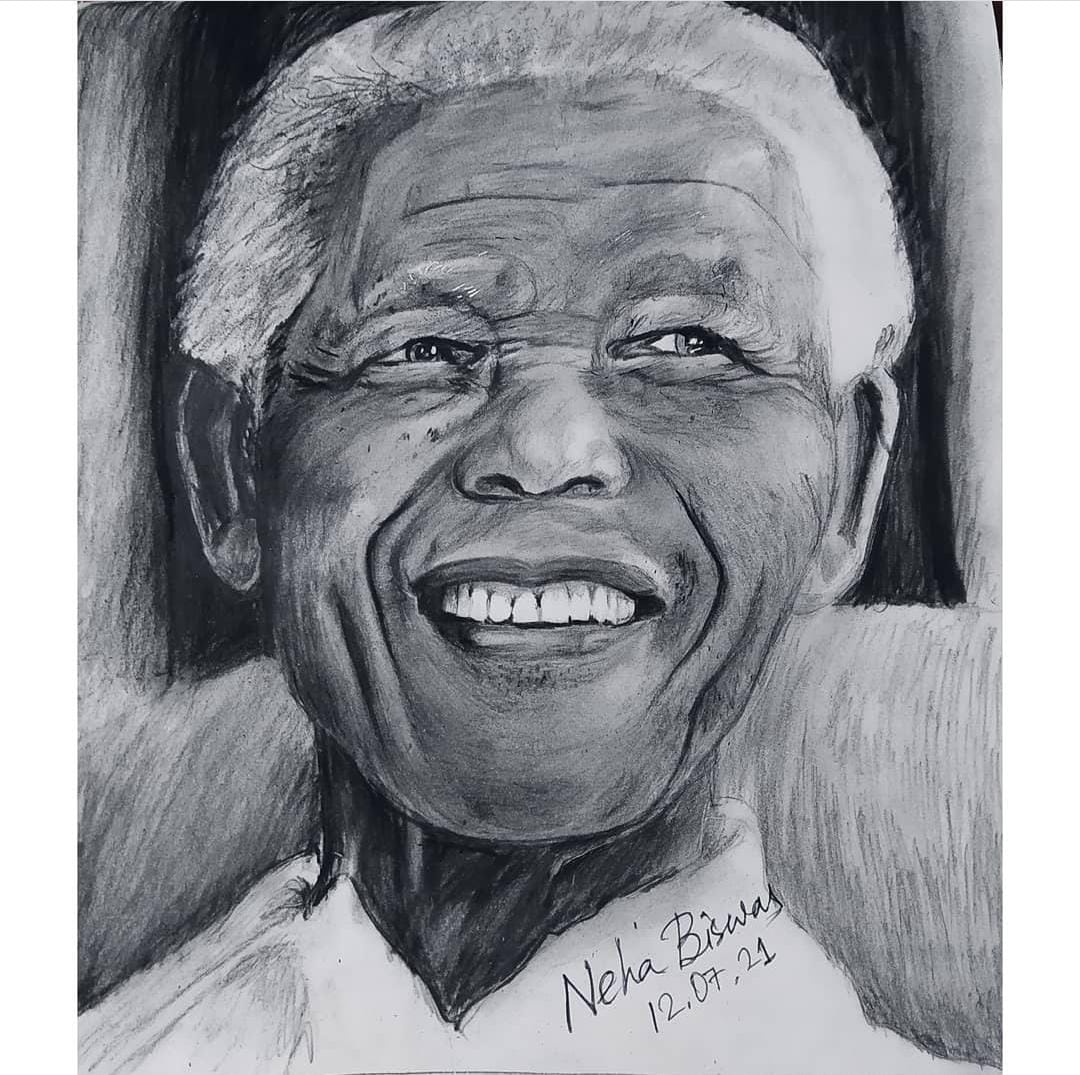 Neha Biswas
12.07.21